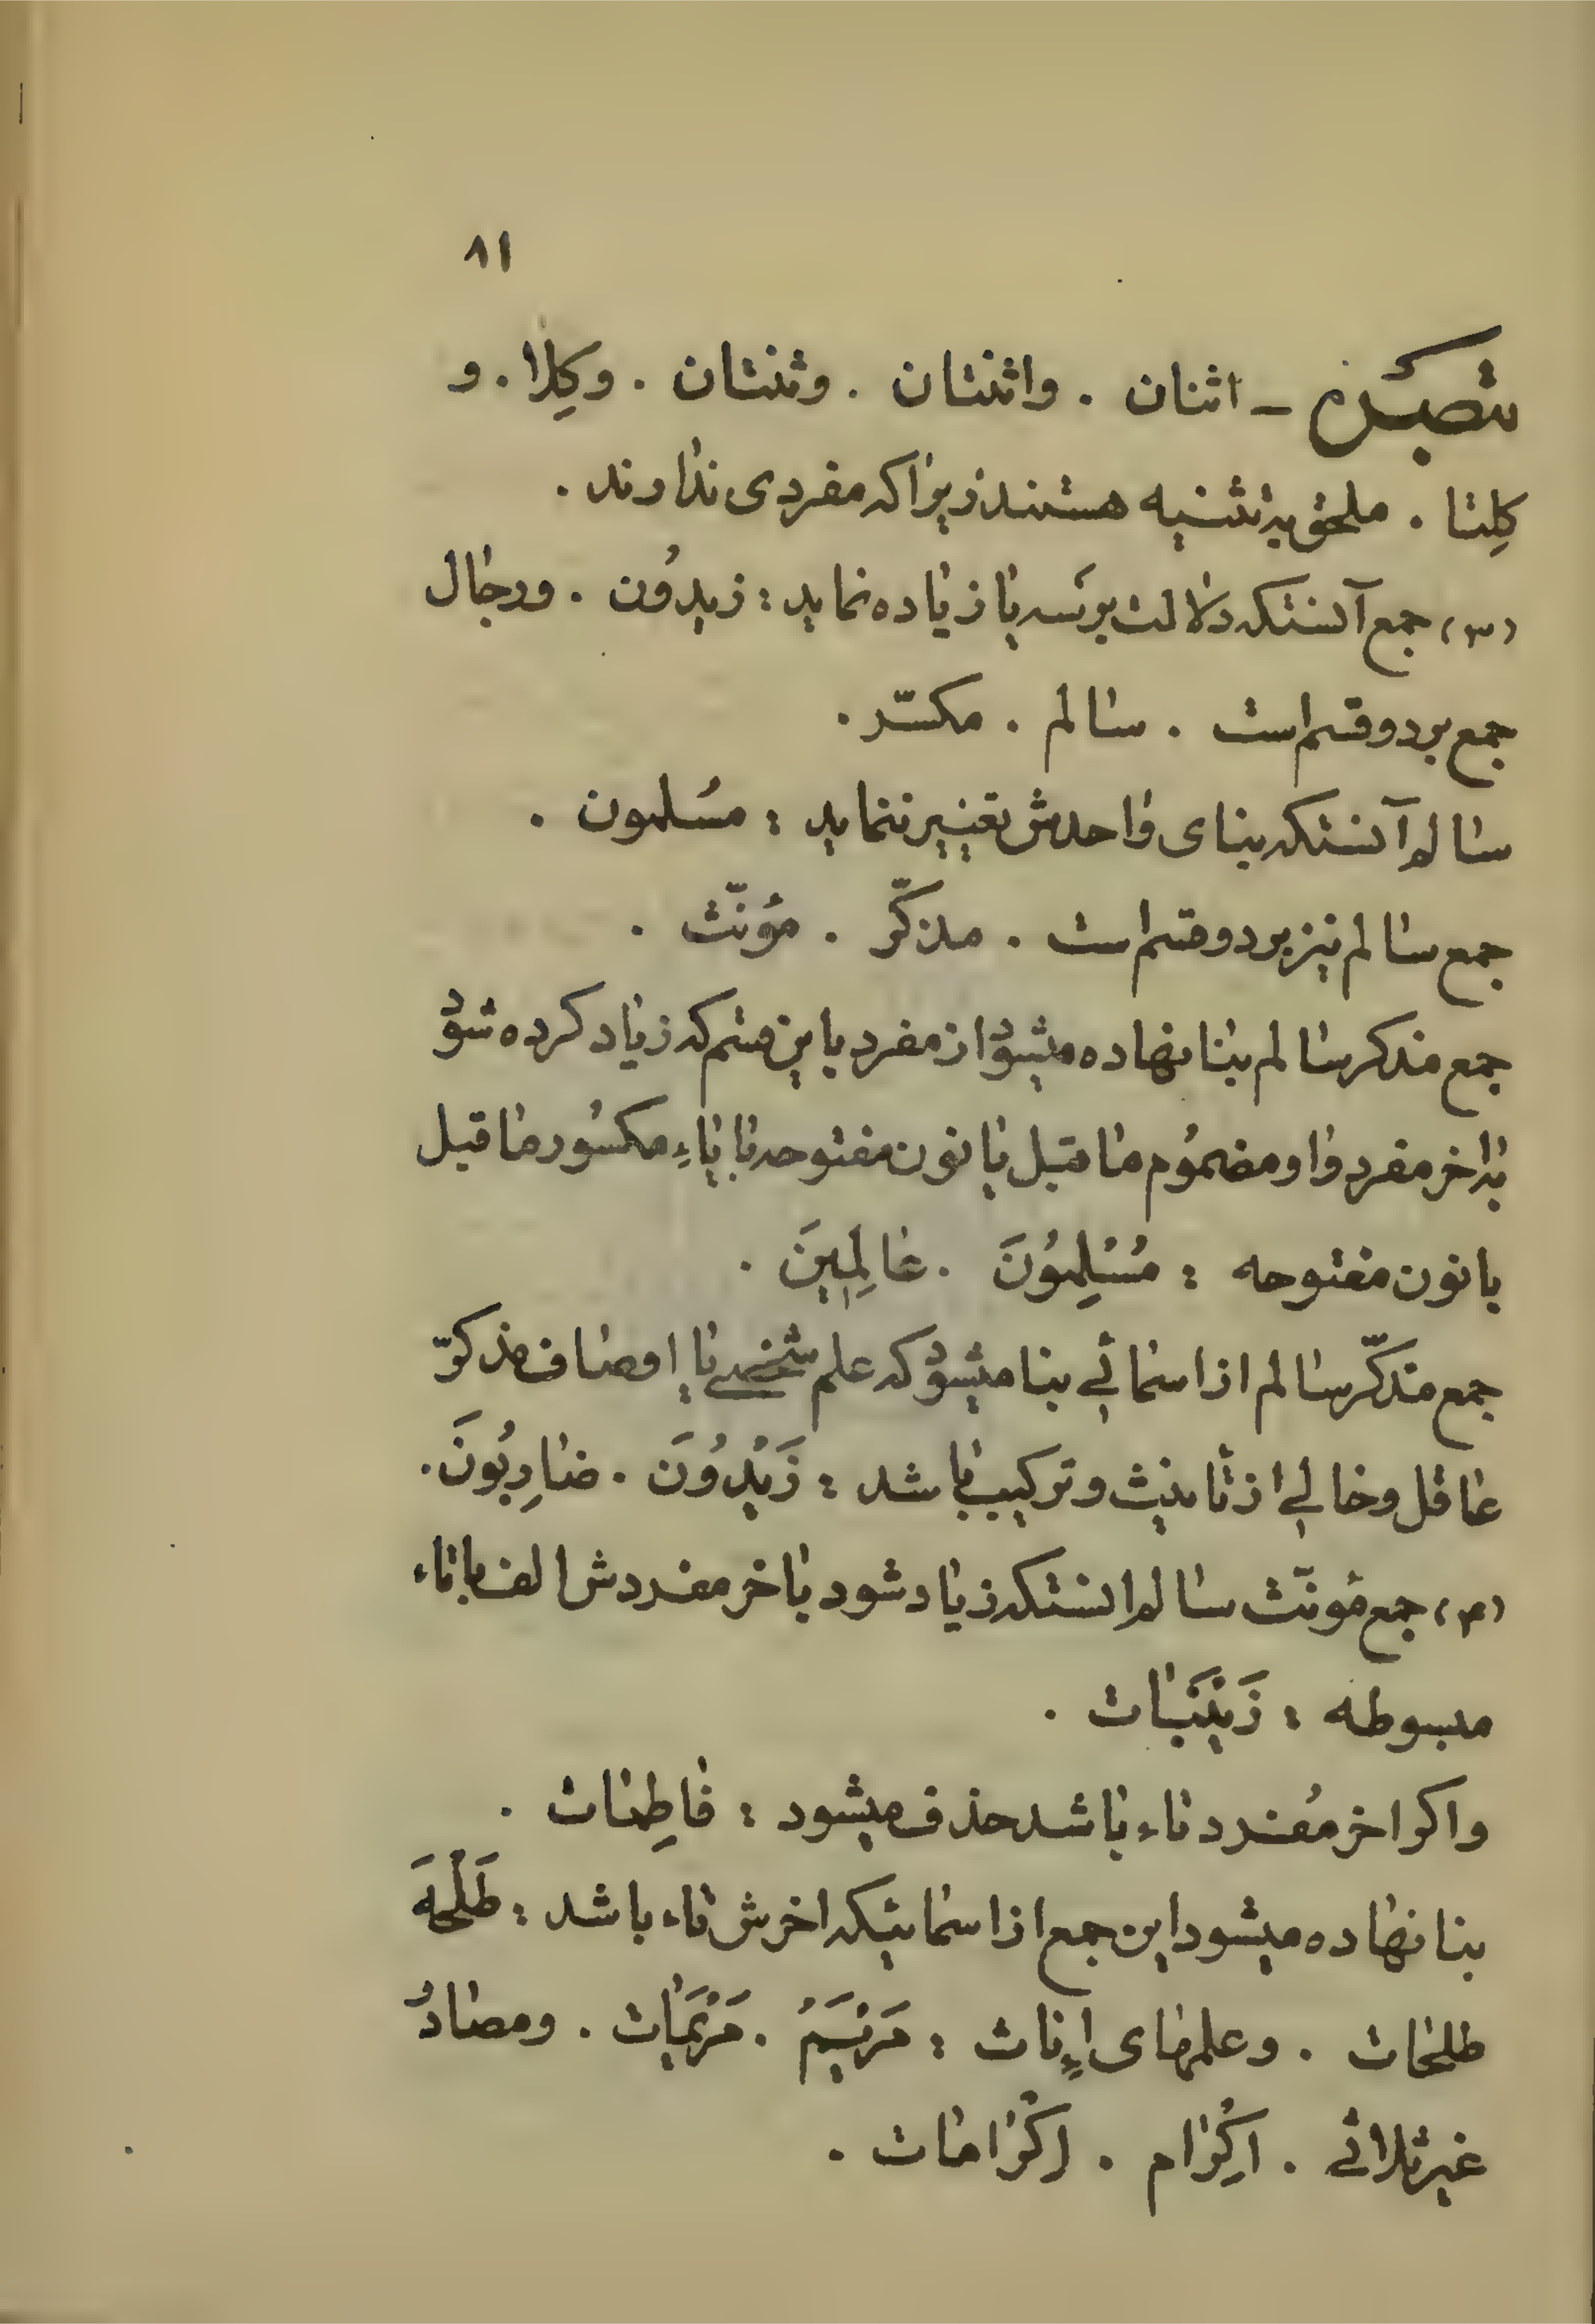 ۸۱
تبصره ـ اثنان . واثنتان . وثنتان . وکِلا . و
کِلتا . ملحق بتثنیه هستند زیرا که مفردی ندارند .
(۳) جمع آنستکه دلالت بر سه یا زیاده نماید : زیدُون . ورجال
جمع بر دو قسم است . سالم . مکسّر .
سالم آنستکه بنای واحدش تغییر ننماید : مسُلمون .
جمع سالم نیز بر دو قسم است . مذکّر . مؤنّث .
جمع مذکر سالم بنا نهاده میشود از مفرد باین قسم که زیاد کرده شود
بٰاخر مفرد واو مضموُم ما قبل با نون مفتوحه یا یاءِ مکسُور ما قبل
با نون مفتوحه : مُسْلِمُونَ . عٰالِمِینَ .
جمع مذکّر سالم از اسمائے بنا میشود که علم شخصے یا اوصاف مذکّر
عاقل وخالے از تأنیث و ترکیب باشد : زَیْدُونَ . ضارِبُونَ .
(۴) جمع مؤنّث سالم انستکه زیاد شود باخر مفردش الف با تاء
مبسوطه : زَیْنَبٰات .
واکر اخر مُفرد تاء باشد حذف میشود : فاطِمٰات .
بنا نهاده میشود این جمع از اسمائیکه اخرش تاء باشد : طَلْحَهَ
طلحٰات . وعلمهای اِناث : مَرْیَمُ . مَرْیَمٰات . ومصادُر
غیر ثلاثے . اکِرٰام . اِکْرٰامٰات .